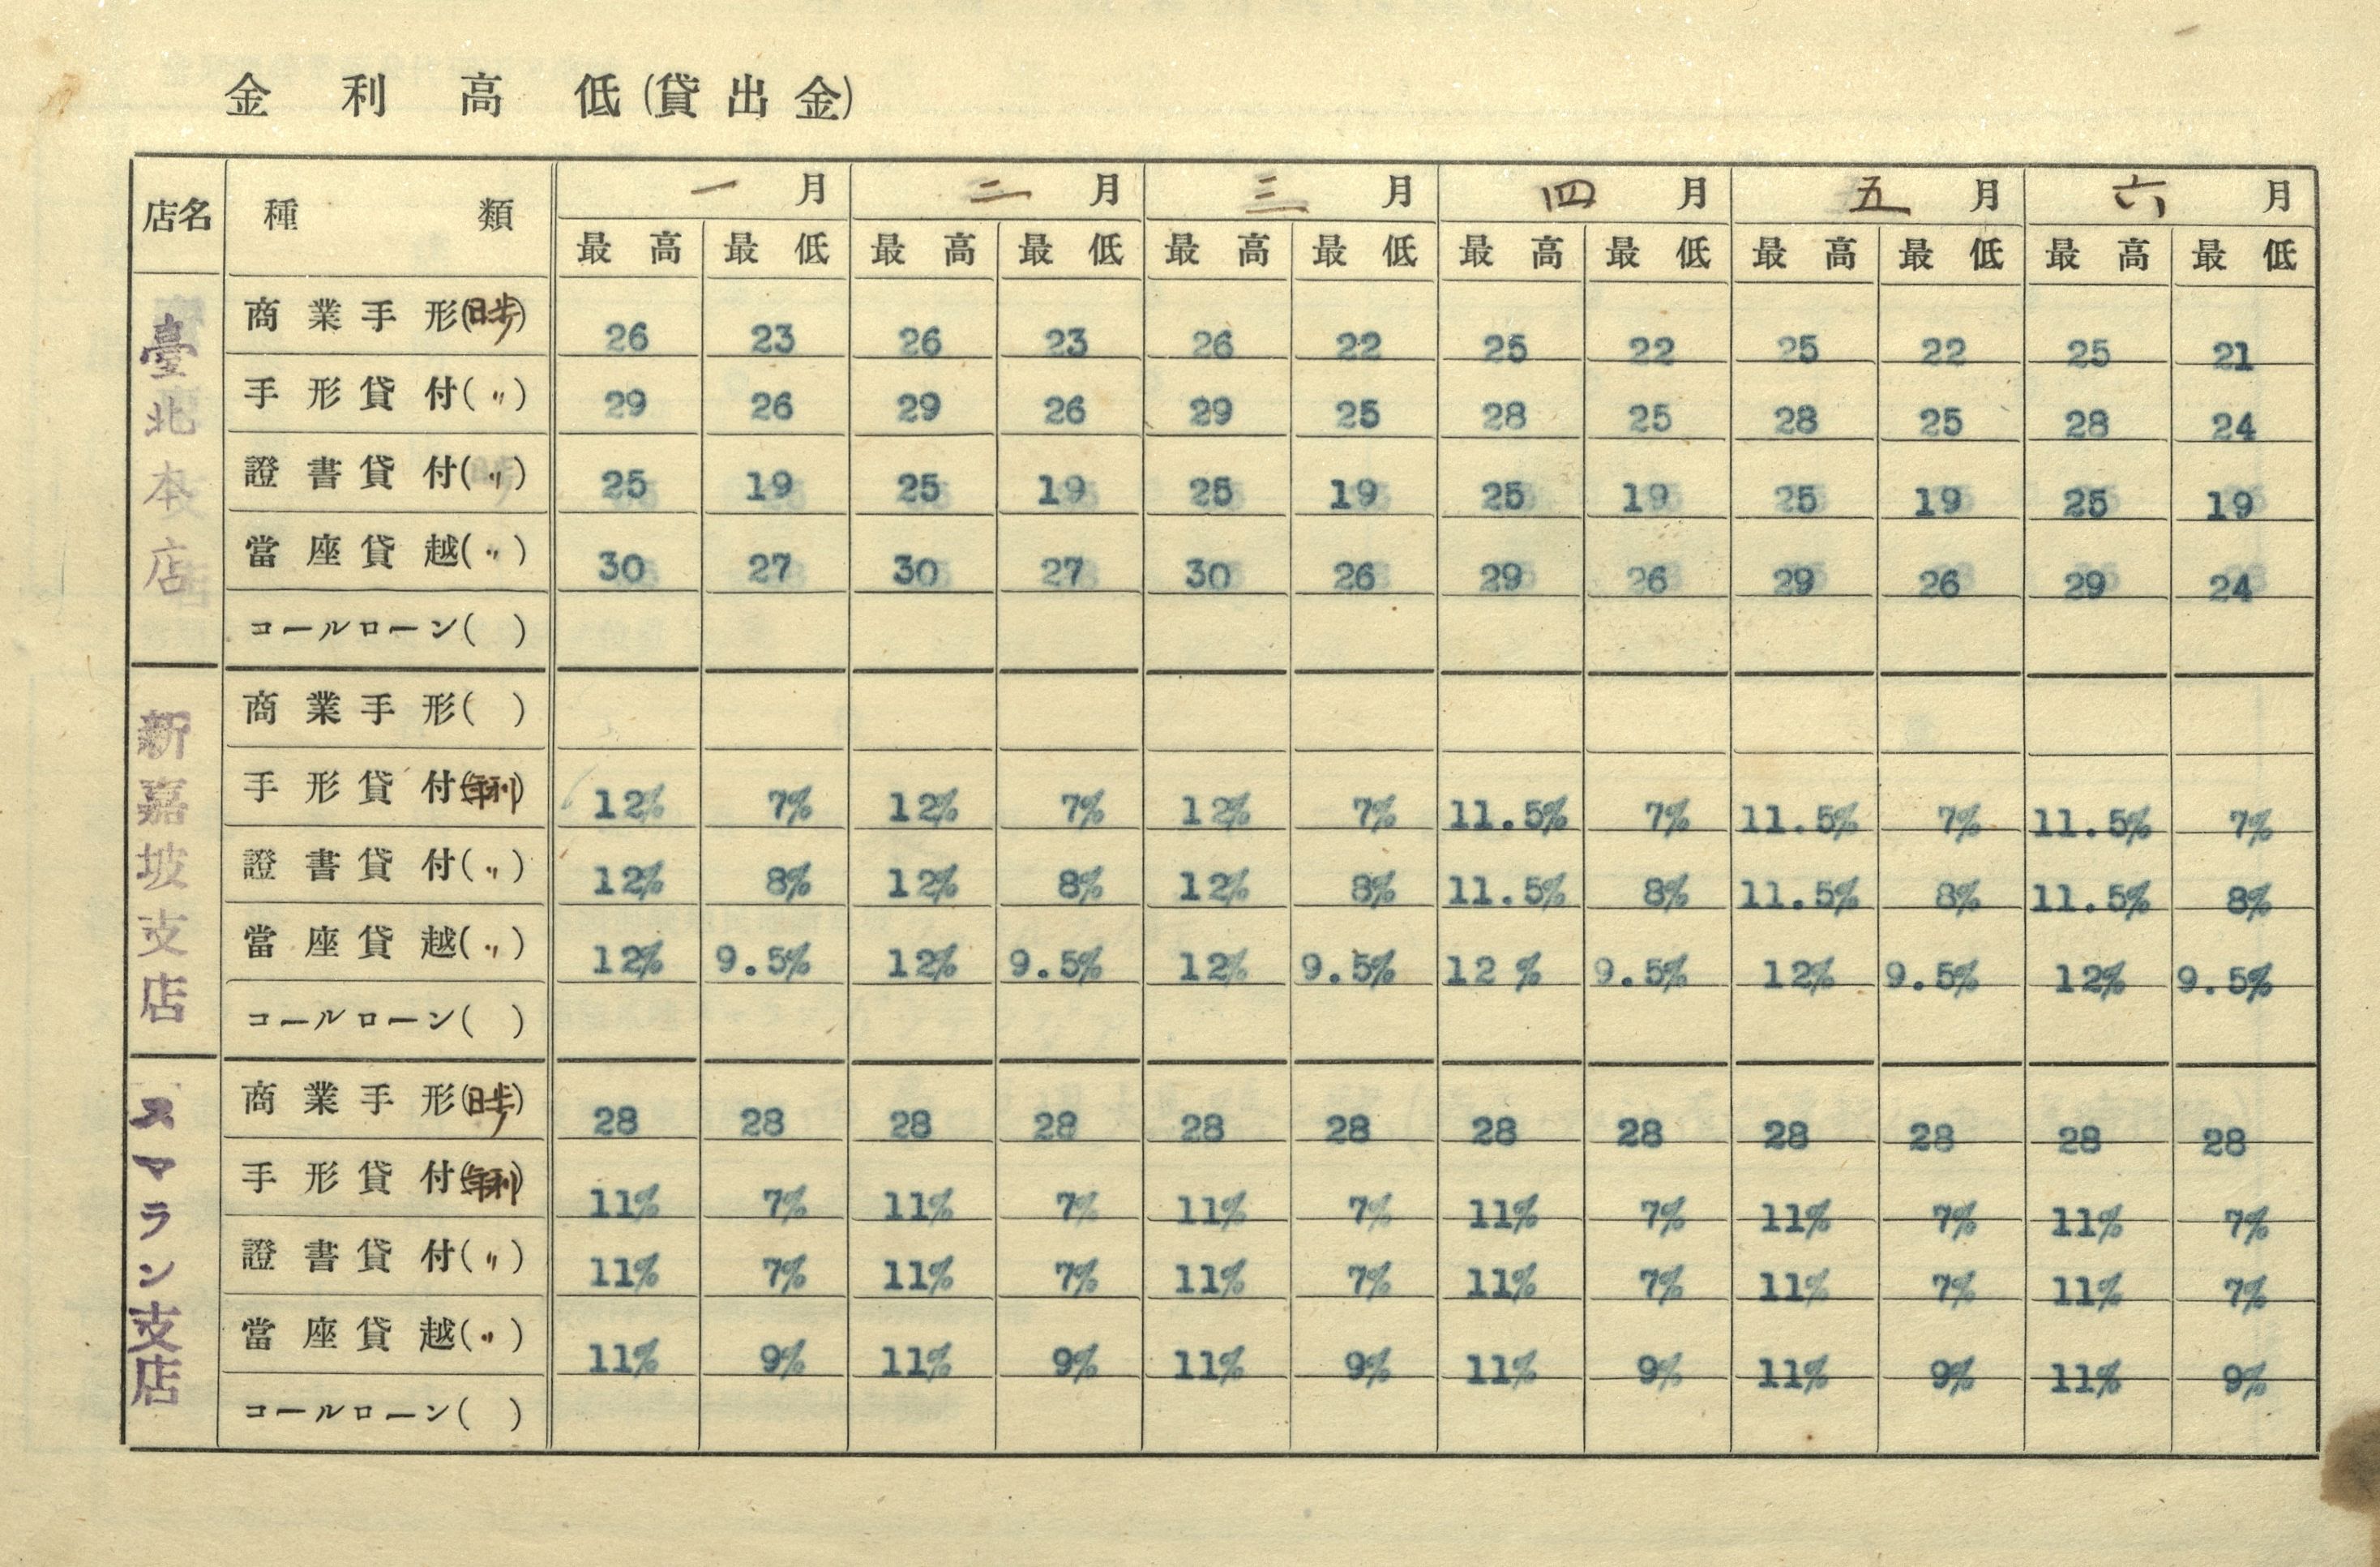 金利高低(貸出金)
店名 種類 一月 二月 三月 四月 五月 六月
最高 最低 最高 最低 最高 最低 最高 最低 最高 最低 最高 最低
臺北本店
商業手形(日歩) 26 23 26 23 26 22 25 22 25 22 25 21
手形貸付(〃) 29 26 29 26 29 25 28 25 28 25 28 24
證書貸付(〃) 25 19 25 19 25 19 25 19 25 19 25 19
當座貸越(〃) 30 27 30 27 30 26 29 26 29 26 29 24
コールローン( )
新嘉坡支店
商業手形( )
手形貸付(年利) 12% 7% 12% 7% 12% 7% 11.5% 7% 11.5% 7% 11.5% 7%
證書貸付(〃) 12% 8% 12% 8% 12% 8% 11.5% 8% 11.5% 8% 11.5% 8%
當座貸越(〃) 12% 9.5% 12% 9.5% 12% 9.5% 12% 9.5% 12% 9.5% 12% 9.5%
コールローン( )
スマラン支店
商業手形(日歩) 28 28 28 28 28 28 28 28 28 28 28 28
手形貸付(年利) 11% 7% 11% 7% 11% 7% 11% 7% 11% 7% 11% 7%
證書貸付(〃) 11% 7% 11% 7% 11% 7% 11% 7% 11% 7% 11% 7%
當座貸越(〃) 11% 9% 11% 9% 11% 9% 11% 9% 11% 9% 11% 9%
コールローン( )